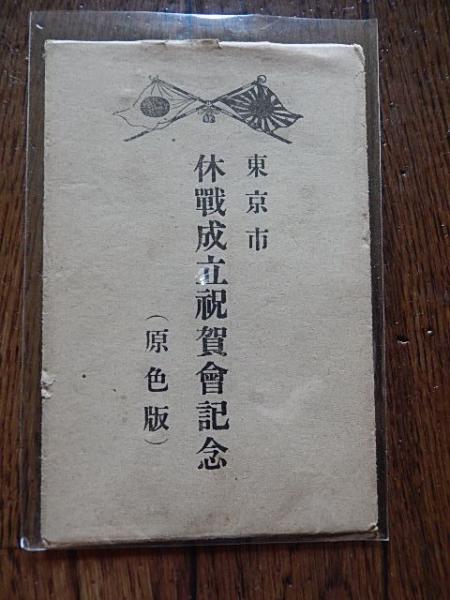 東京市
休戰成立祝賀會記念
（原色版）